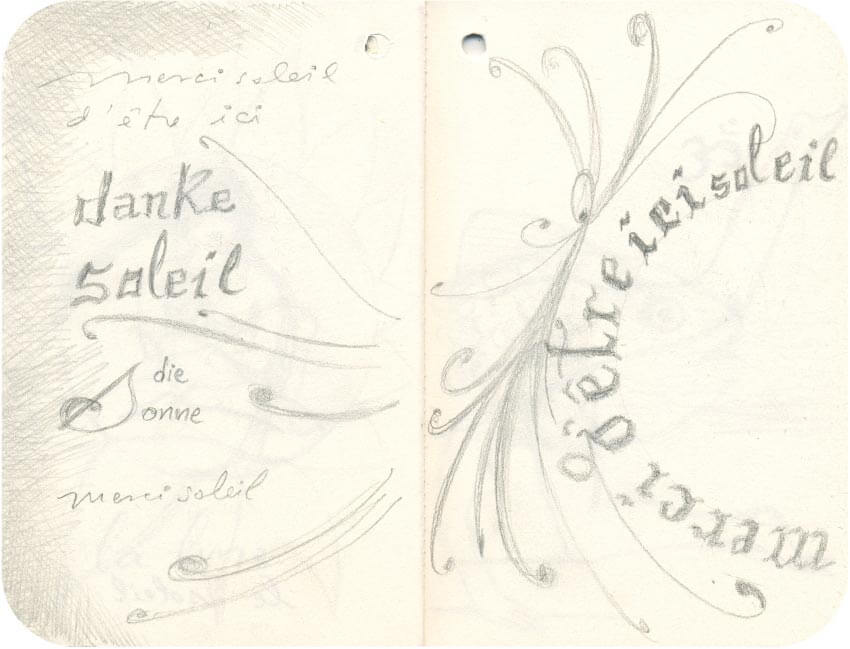 merci soleil
d'être ici
danke
soleil
die
Sonne
merci soleil
merci d'être ici soleil